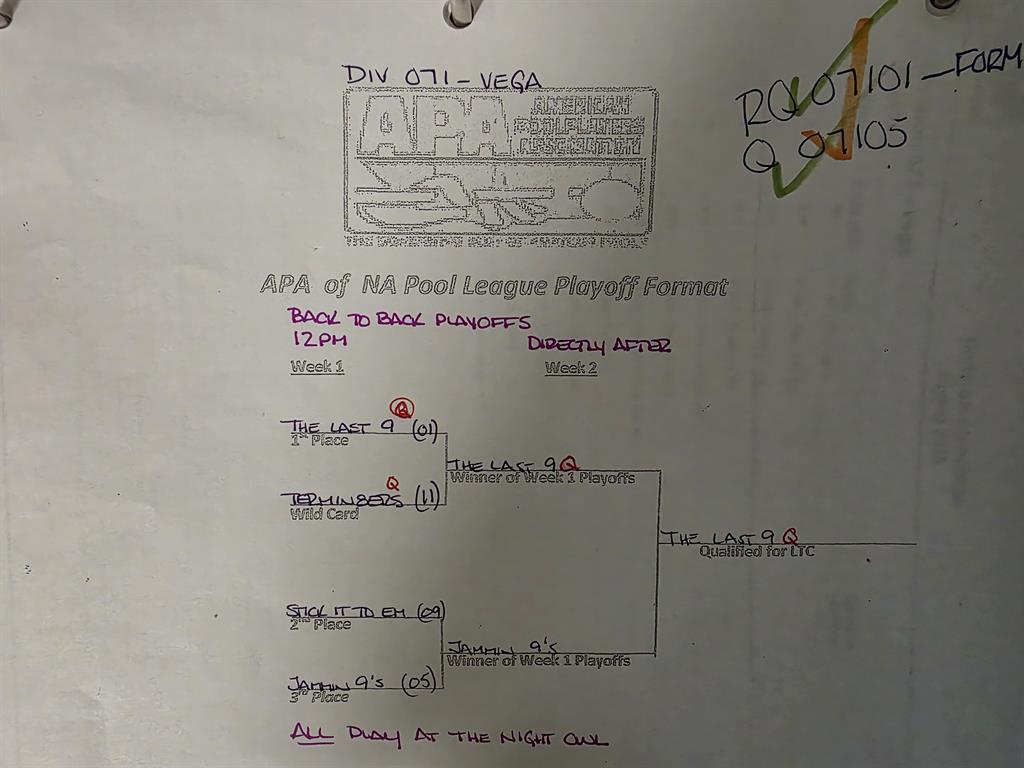 DIV 071 - VEGA
RQ 07101 - FORM
Q 07105
APA
AMERICAN
POOLPLAYERS
ASSOCIATION
APA of NA Pool League Playoff Format
BACK TO BACK PLAYOFFS
12PM
DIRECTLY AFTER
Week 1
Week 2
Q
THE LAST 9 (01)
1st Place
THE LAST 9 Q
Winner of Week 1 Playoffs
Q
TERMIN8ERS (11)
Wild Card
THE LAST 9 Q
Qualified for LTC
STICK IT TO EM (09)
2nd Place
JAMMIN 9'S
Winner of Week 1 Playoffs
JAMMIN 9'S (05)
3rd Place
ALL PLAY AT THE NIGHT OWL